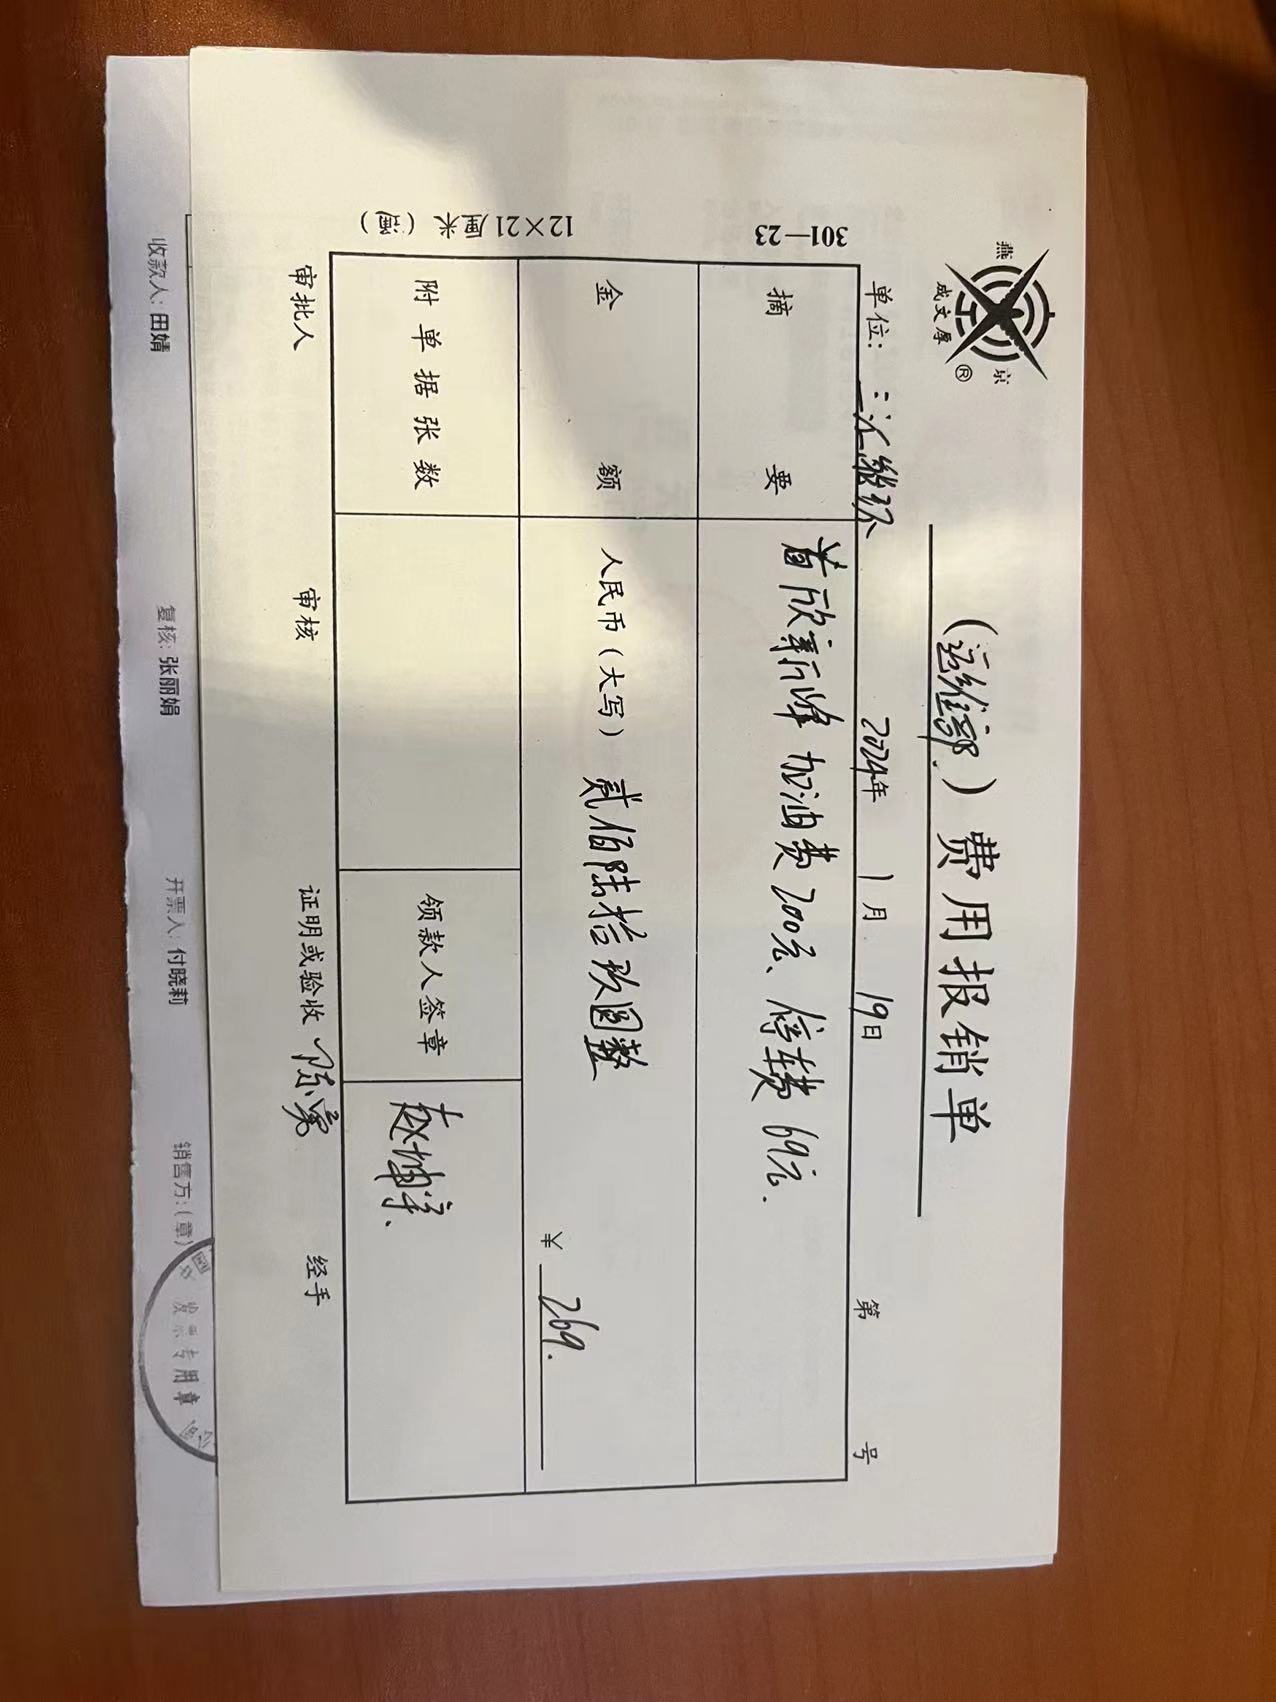 燕京
成文厚
®
（运维部）费用报销单
单位：三汇能环 2024年 1月 19日 第 号
301—23
摘要 首欣新峰 加油费200元、停车费69元.
金额 人民币（大写）贰佰陆拾玖圆整 ¥ 269.
附单据张数 领款人签章
审批人 审核 证明或验收 经手
12×21厘米（通）
收款人: 田婧 复核: 张丽娟 开票人: 付晓莉 销售方:（章）
发票专用章